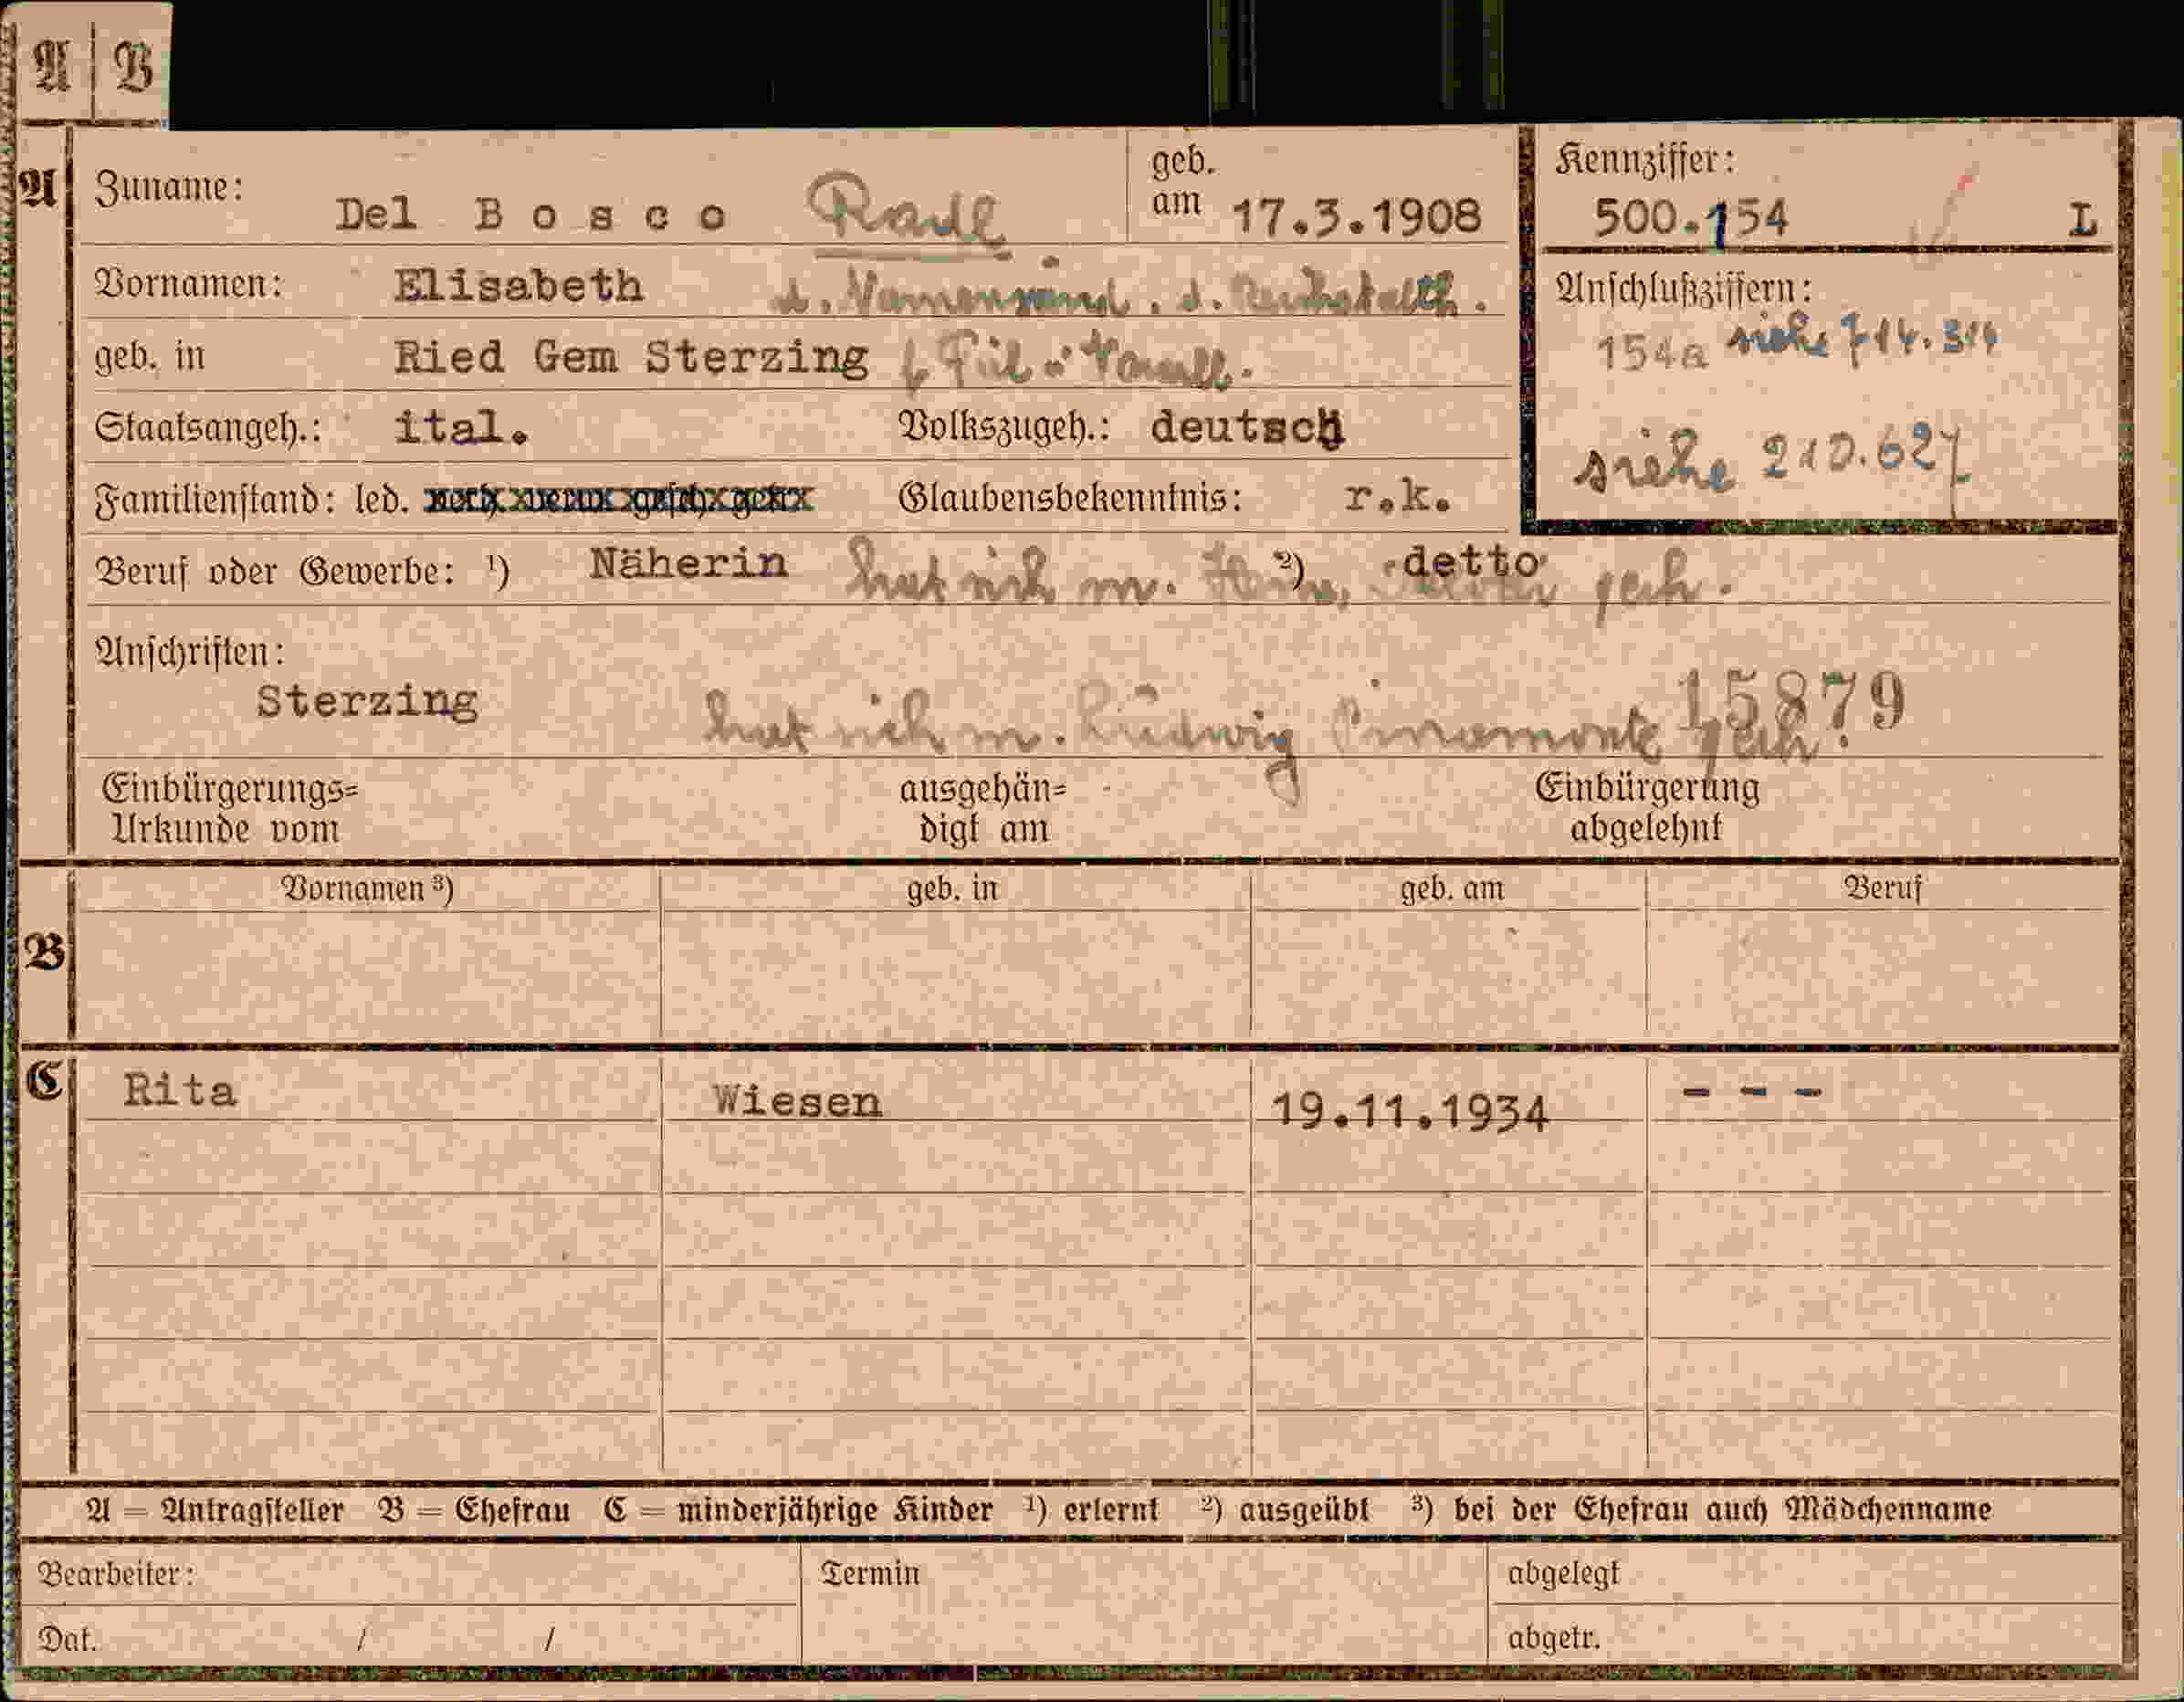 A B
A Zuname: Del Bosco Radl geb. am 17.3.1908 Kennziffer: 500.154 L
Vornamen: Elisabeth d. Namensänd. d. Reichsstatth. Anschlußziffern:
geb. in Ried Gem Sterzing f. Tirol u. Vorarlb. 154a siehe 714.314
Staatsangeh.: ital. Volkszugeh.: deutsch siehe 210.627
Familienstand: led. verh. verw. gesch. getr. Glaubensbekenntnis: r.k.
Beruf oder Gewerbe: ¹) Näherin hat sich m. ²) detto geh.
Anschriften:
Sterzing hat sich m. Ludwig Piramonte geh. 15879
Einbürgerungs= ausgehän= Einbürgerung
Urkunde vom digt am abgelehnt
Vornamen ³) geb. in geb. am Beruf
B
C Rita Wiesen 19.11.1934 - - -
A = Antragsteller B = Ehefrau C = minderjährige Kinder ¹) erlernt ²) ausgeübt ³) bei der Ehefrau auch Mädchenname
Bearbeiter: Termin abgelegt
Dat. / / abgetr.